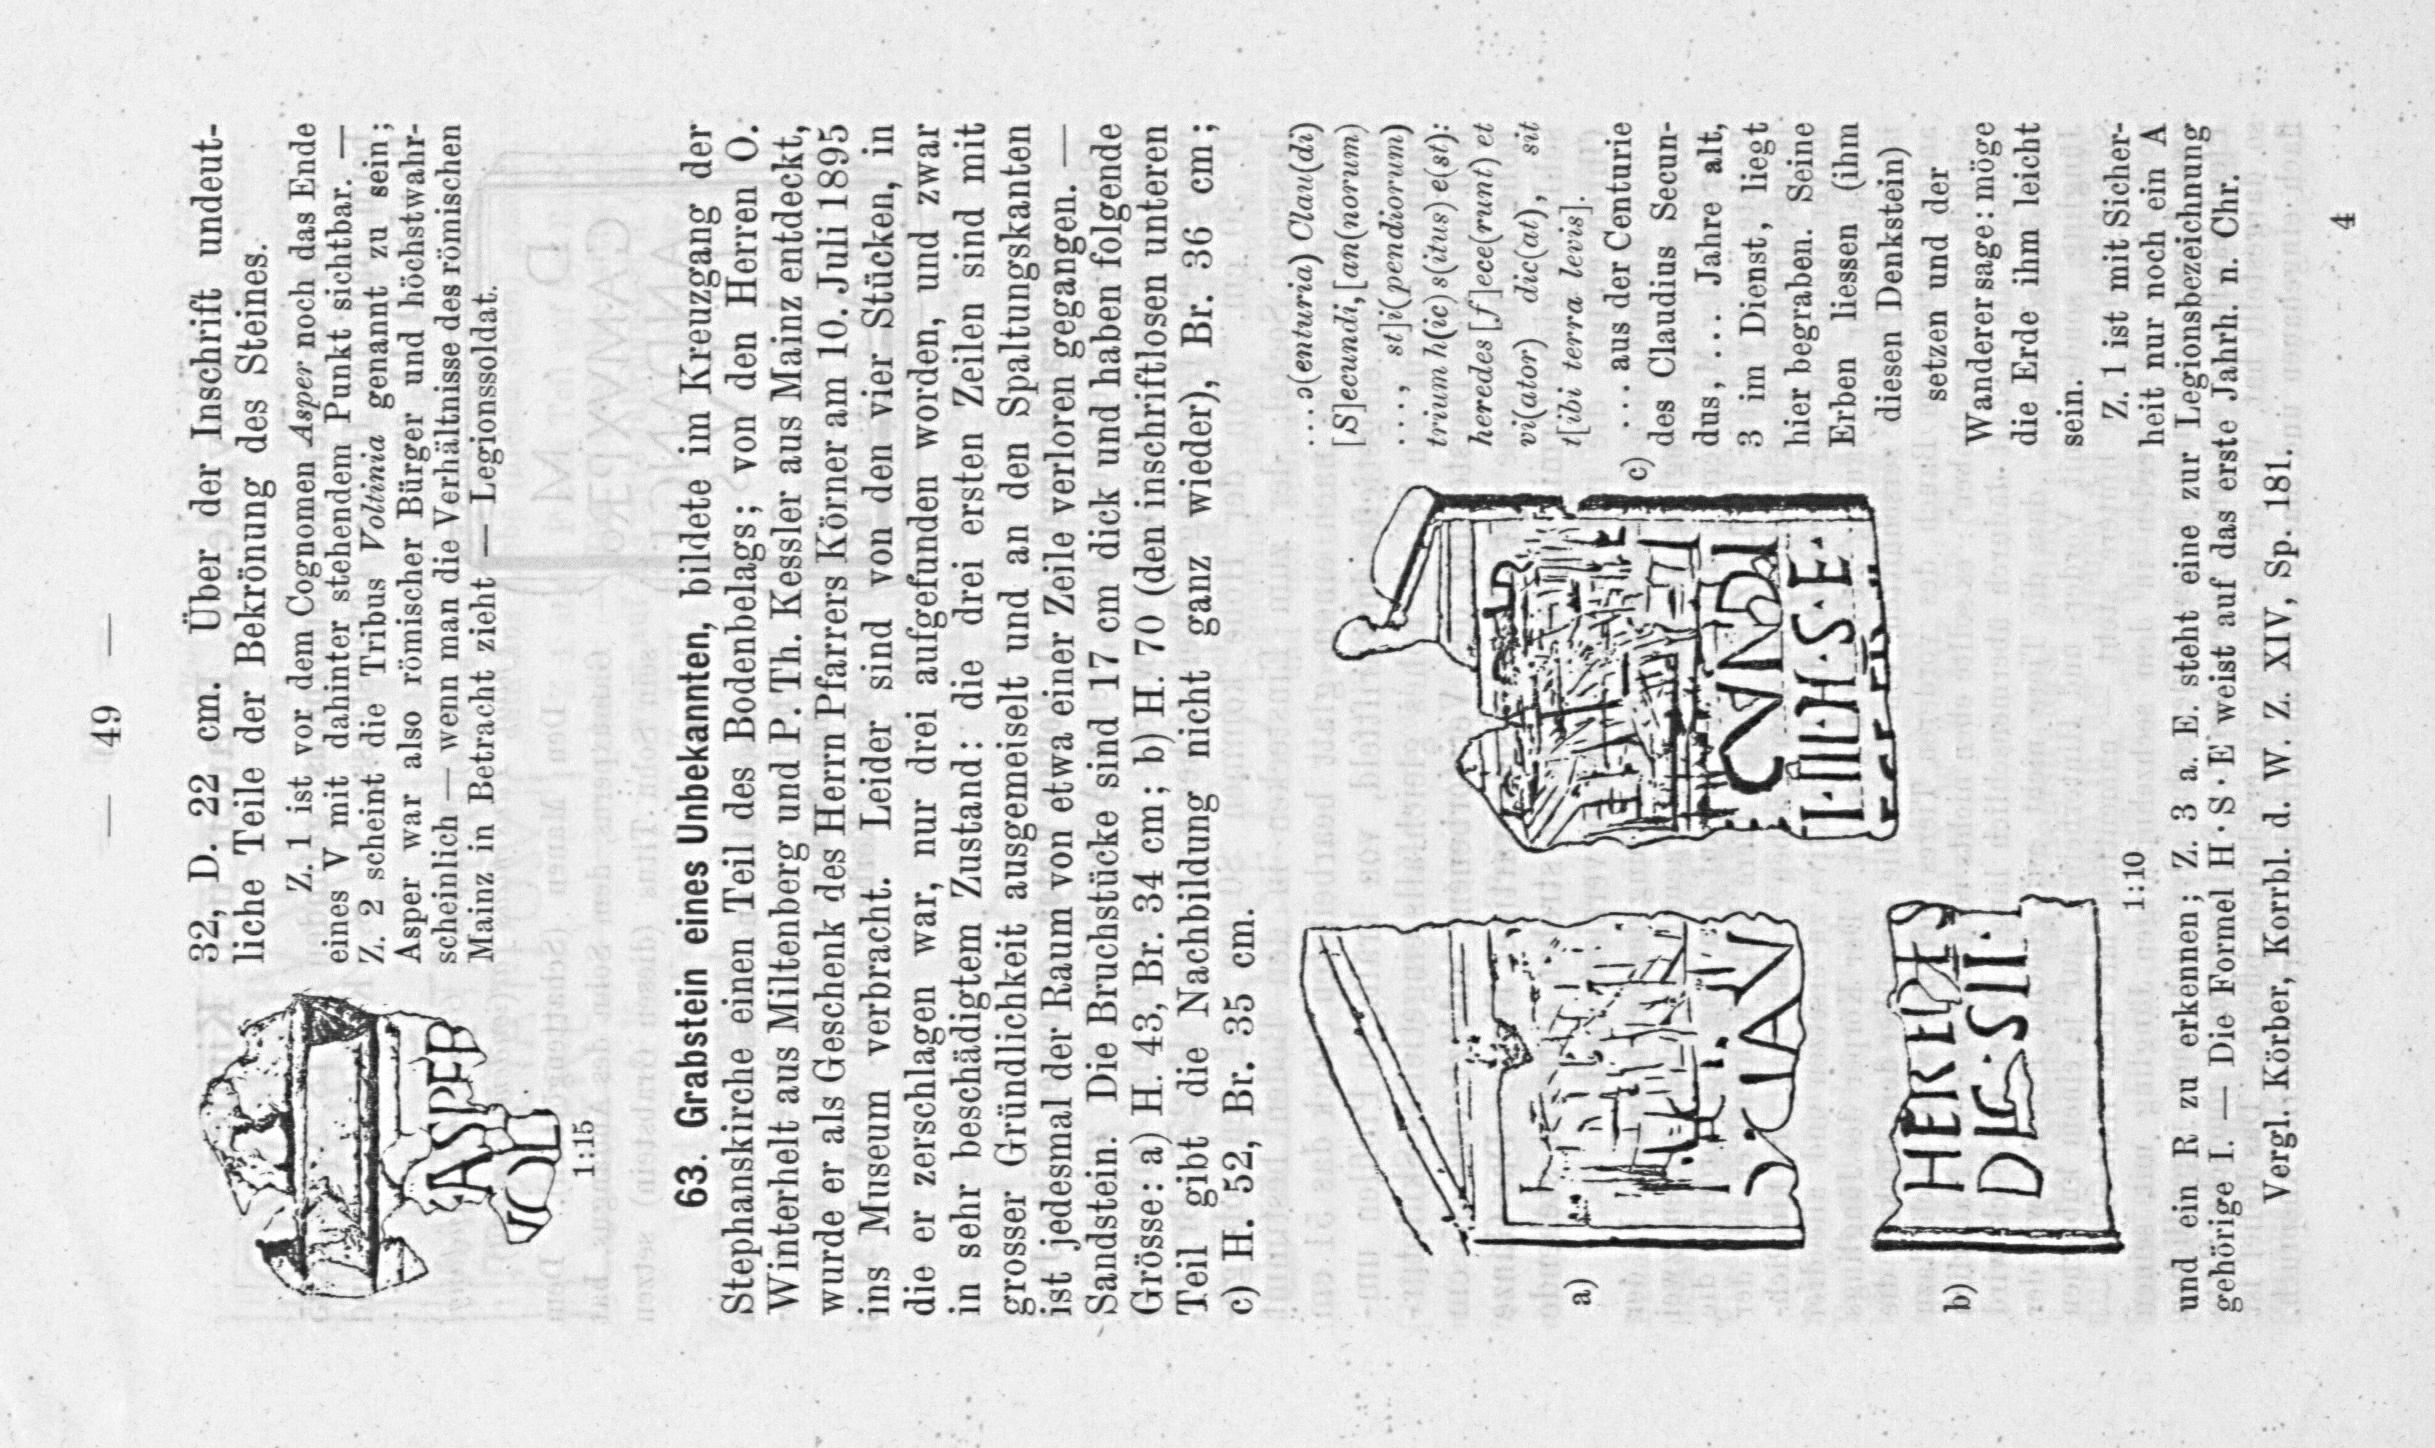 — 49 —
32, D. 22 cm. Über der Inschrift undeut-
liche Teile der Bekrönung des Steines.
Z. 1 ist vor dem Cognomen Asper noch das Ende
eines V mit dahinter stehendem Punkt sichtbar. —
Z. 2 scheint die Tribus Voltinia genannt zu sein;
Asper war also römischer Bürger und höchstwahr-
scheinlich — wenn man die Verhältnisse des römischen
Mainz in Betracht zieht — Legionssoldat.
ASPER
VOL
1:15
63. Grabstein eines Unbekannten, bildete im Kreuzgang der
Stephanskirche einen Teil des Bodenbelags; von den Herren O.
Winterhelt aus Miltenberg und P. Th. Kessler aus Mainz entdeckt,
wurde er als Geschenk des Herrn Pfarrers Körner am 10. Juli 1895
ins Museum verbracht. Leider sind von den vier Stücken, in
die er zerschlagen war, nur drei aufgefunden worden, und zwar
in sehr beschädigtem Zustand: die drei ersten Zeilen sind mit
grosser Gründlichkeit ausgemeiselt und an den Spaltungskanten
ist jedesmal der Raum von etwa einer Zeile verloren gegangen. —
Sandstein. Die Bruchstücke sind 17 cm dick und haben folgende
Grösse: a) H. 43, Br. 34 cm; b) H. 70 (den inschriftlosen unteren
Teil gibt die Nachbildung nicht ganz wieder), Br. 36 cm;
c) H. 52, Br. 35 cm.
a)
Ɔ·CLAV
b)
HEREDES
DIC·SIT·
c)
CVNDI
I·III·H·S·E·
1:10
...ɔ(enturia) Clau(di)
[S]ecundi, [an(norum)
..., st]i(pendiorum)
trium h(ic) s(itus) e(st):
heredes [f]ece(runt) et
vi(ator) dic(at), sit
t[ibi terra levis].
... aus der Centurie
des Claudius Secun-
dus, ... Jahre alt,
3 im Dienst, liegt
hier begraben. Seine
Erben liessen (ihm
diesen Denkstein)
setzen und der
Wanderer sage: möge
die Erde ihm leicht
sein.
Z. 1 ist mit Sicher-
heit nur noch ein A
und ein R zu erkennen; Z. 3 a. E. steht eine zur Legionsbezeichnung
gehörige I. — Die Formel H·S·E weist auf das erste Jahrh. n. Chr.
Vergl. Körber, Korrbl. d. W. Z. XIV, Sp. 181.
4